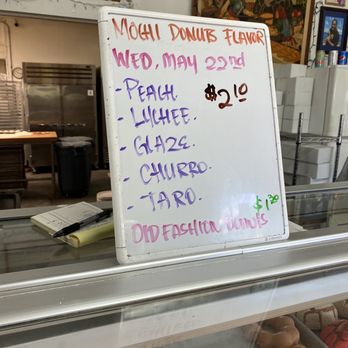 MOCHI DONUTS FLAVOR
WED, MAY 22nd
- PEACH. $2.10
- LYCHEE.
- GLAZE.
- CHURRO.
- TARO.
$1.30
OLD FASHION DONUTS